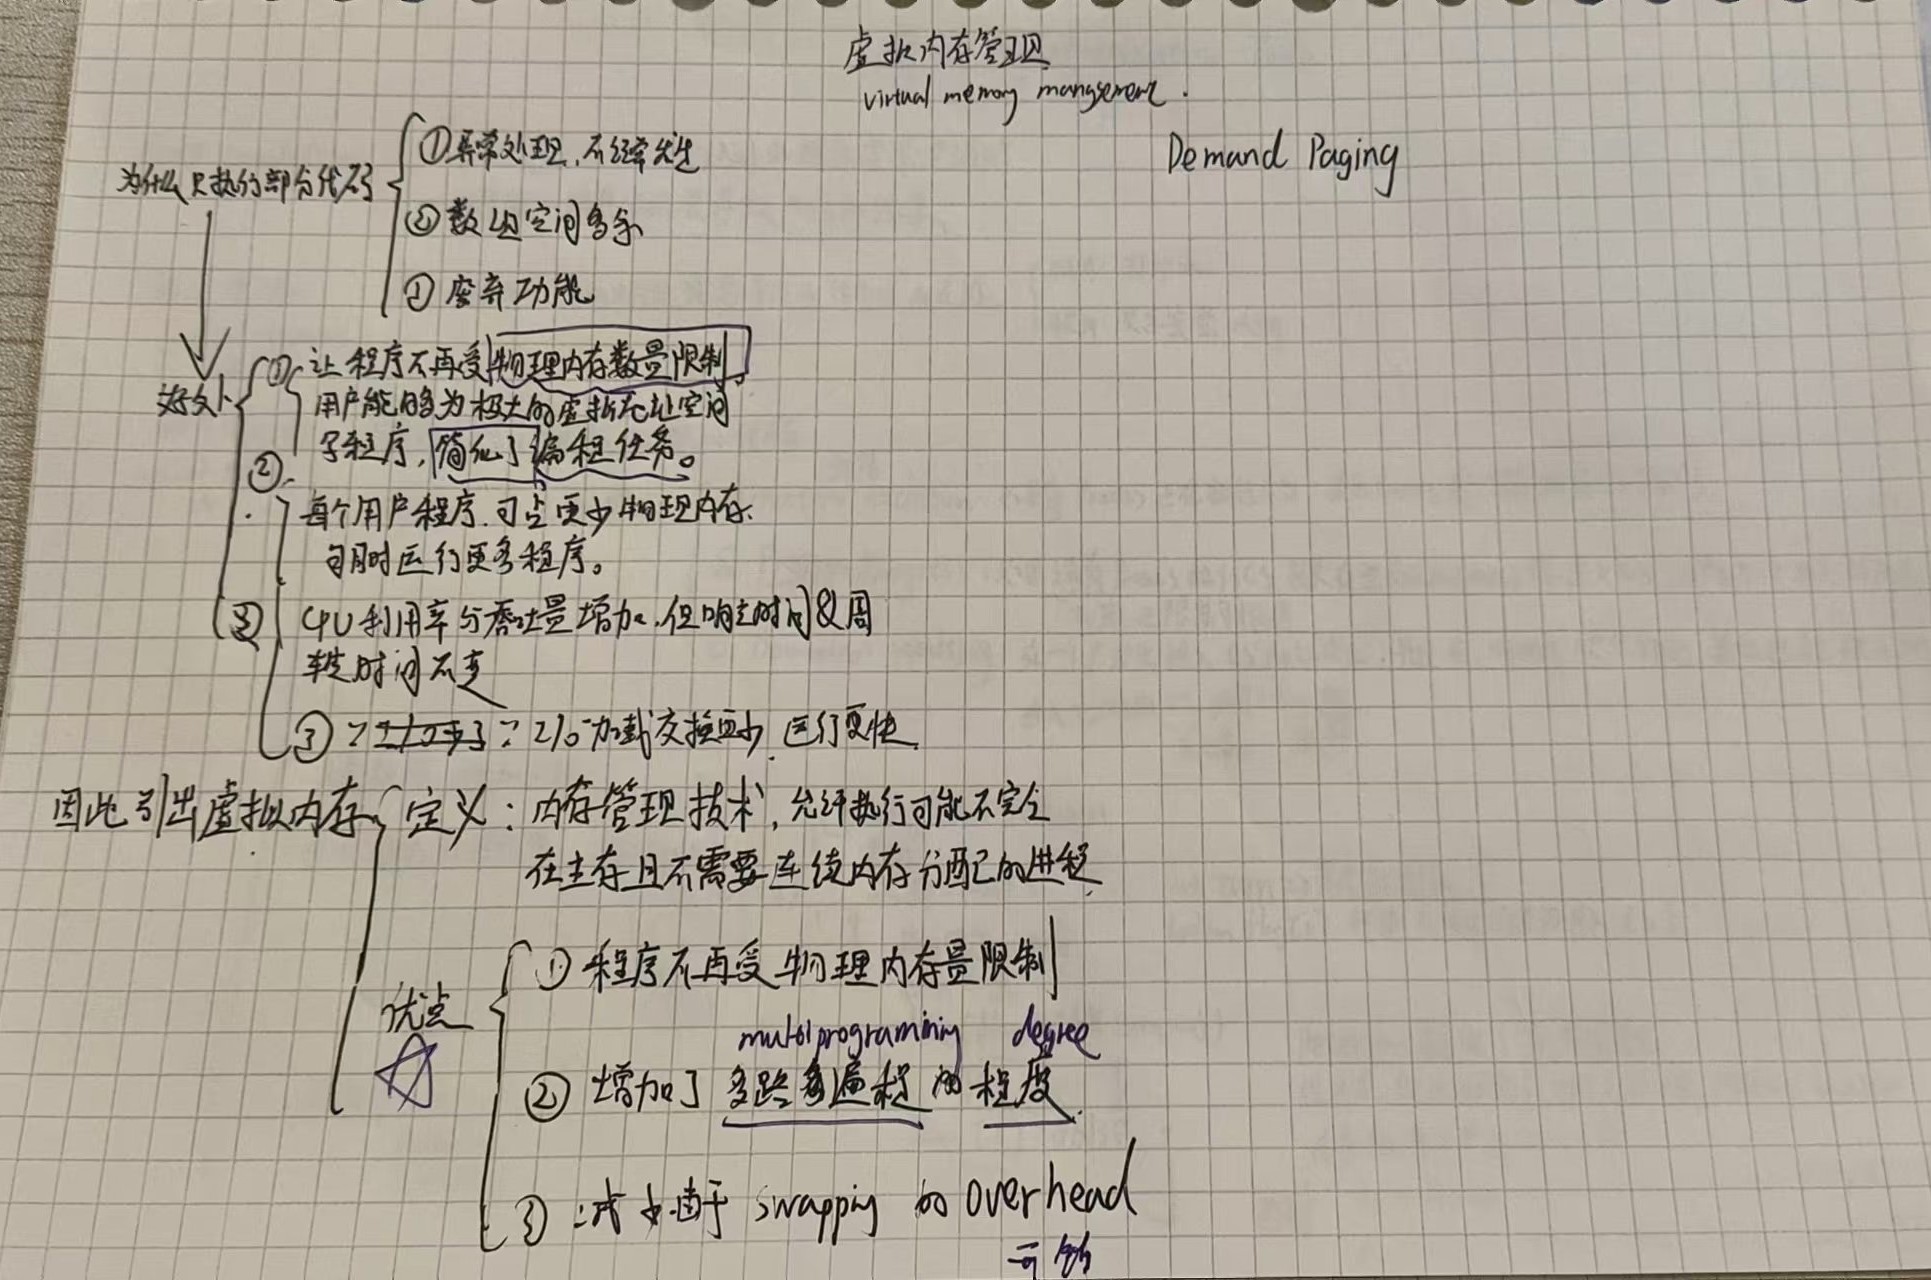 虚拟内存管理
virtual memory mangsement.
Demand Paging
为什么只执行部分代码
①异常处理,不经常发生
②数组空间多余
③废弃功能
好处
①让程序不再受物理内存数量限制,
用户能够为极大的虚拟地址空间
写程序,简化了编程任务。
②
每个用户程序.可占更少物理内存.
同时运行更多程序。
③CPU利用率与吞吐量增加.但响应时间&周
转时间不变
③ I/O 加载交换更少.运行更快.
因此引出虚拟内存
定义:内存管理技术,允许执行可能不完全
在主存且不需要连续内存分配的进程.
优点
①程序不再受物理内存量限制
multiprograming degree
②增加了多路多遍程的程度.
③减少由于swapping的overhead